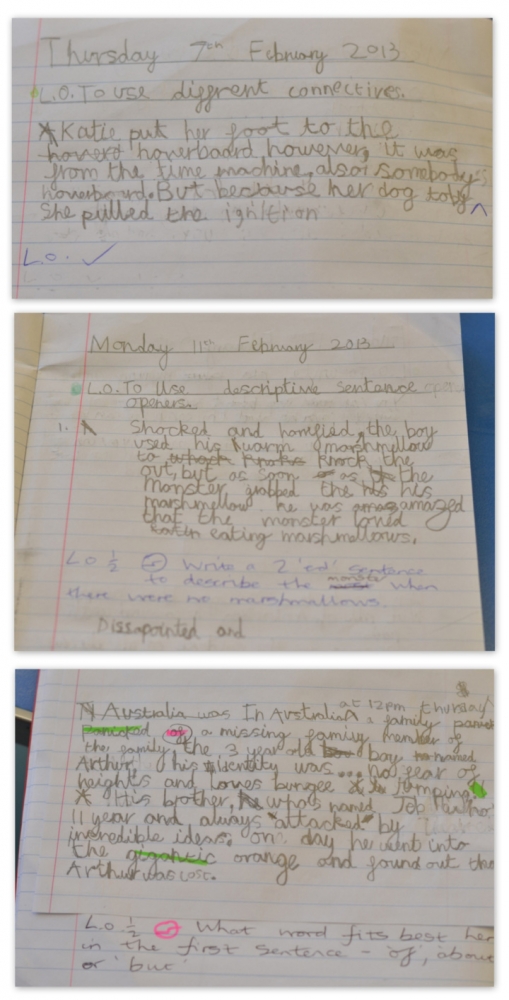 Thursday 7th February 2013
L.O. To use diffrent connectives.
Katie put her foot to the
hoverd hoverboard however, it was
from the time machine, also somebody's
hoverboard. But because her dog toby ^
She pulled the ignition
L.O. ✓
Monday 11th February 2013
L.O. To Use descriptive sentence
openers.
1. Shocked and horrified, the boy
used his warm marshmallow
to knock the
out, but as soon as the
Monster grabbed the his his
marshmallow. he was amazed
that the monster loved
eating marshmallows.
L.O ½ Write a 2 'ed' sentence
to describe the when
there were no marshmallows.
Dissapointed and
at 12pm thursday
Australia was In Australia a family
of a missing family member of
the family, the 3 year old boy named
Arthur, his identity was... no fear of
heights and loves bungee Jumping
His brother, whos named Job who
11 year and always "attacked" by
incredible ideas. one day he went into
the gigantic orange and found out tha
Arthur was lost.
L.O. ½ What word fits best her
in the first sentence - of, about
or 'but'